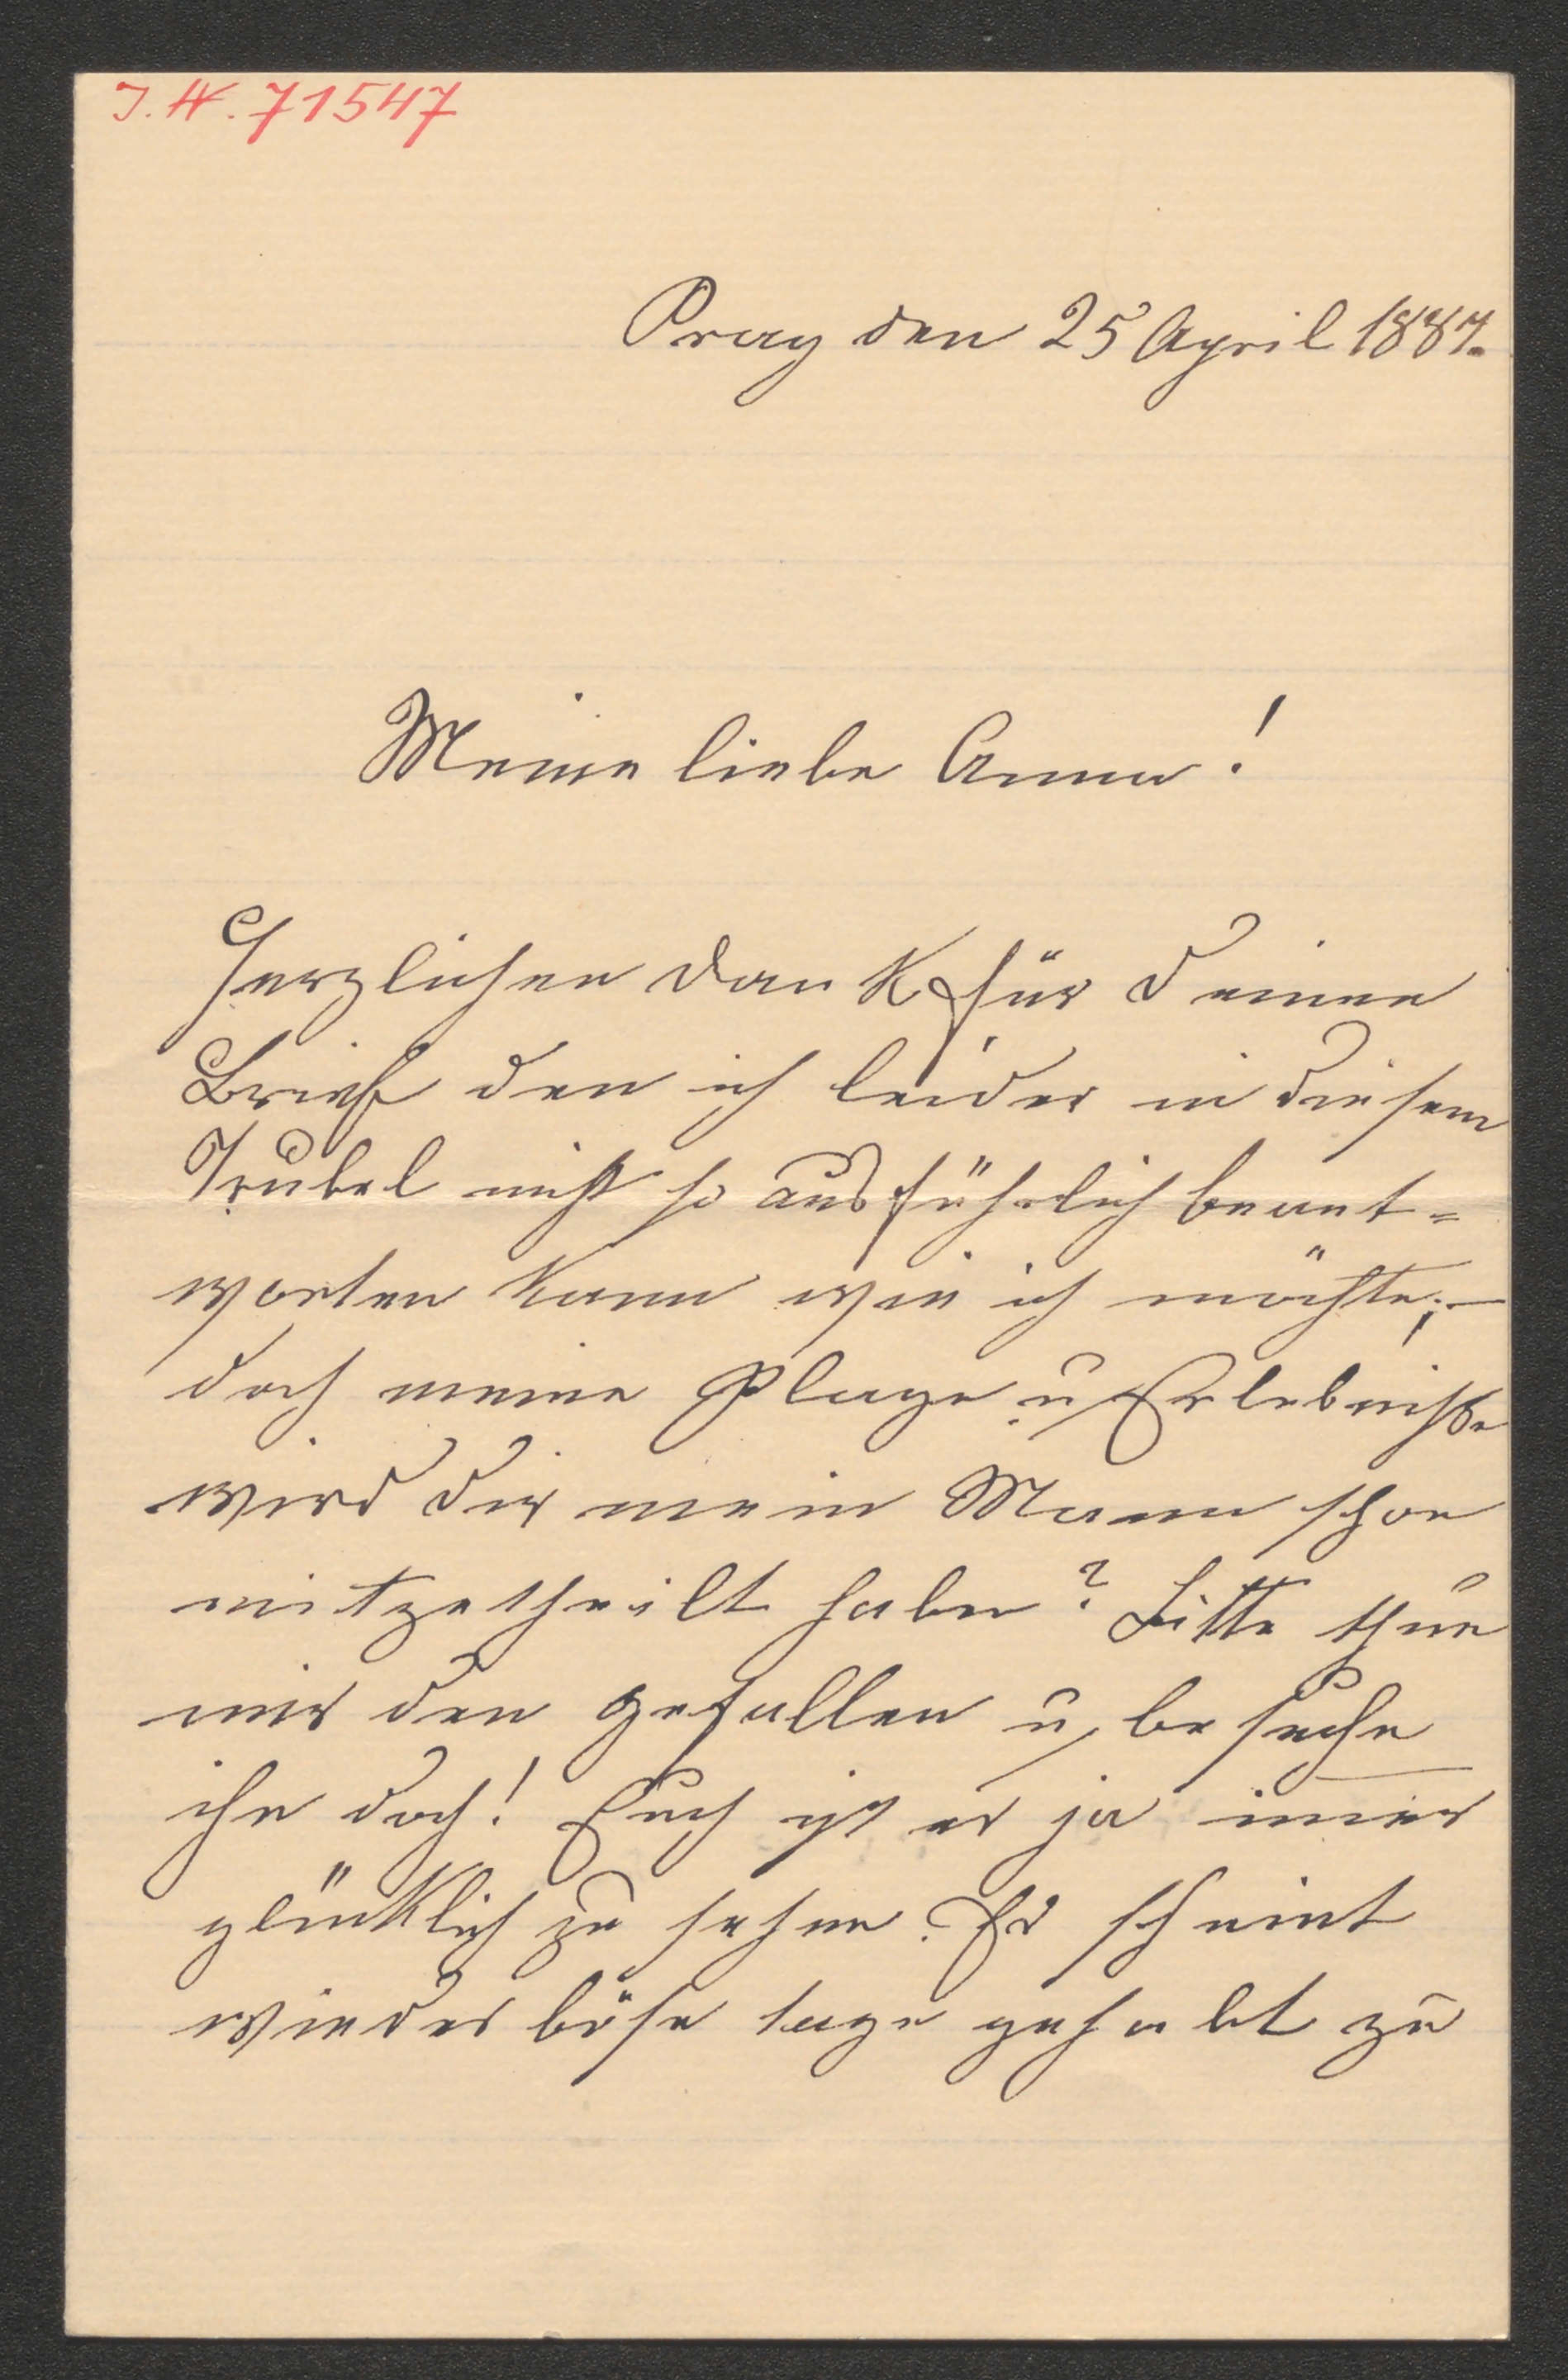 I.N. 71547
Prag den 25 April 1887.
Meine liebe Anna!
Herzlichen Dank für Deinen
Brief den ich leider in diesem
Trubel nicht so ausführlich beant-
worten kann wie ich möchte; —
doch meine Plage u Erlebnisse
wird Dir mein Mann schon
mitgetheilt haben? Bitte thue
mir den gefallen u besuche
ihn doch! Euch ist er ja im̄er
glücklich zu sehen. Er scheint
wieder böse tage gehabt zu